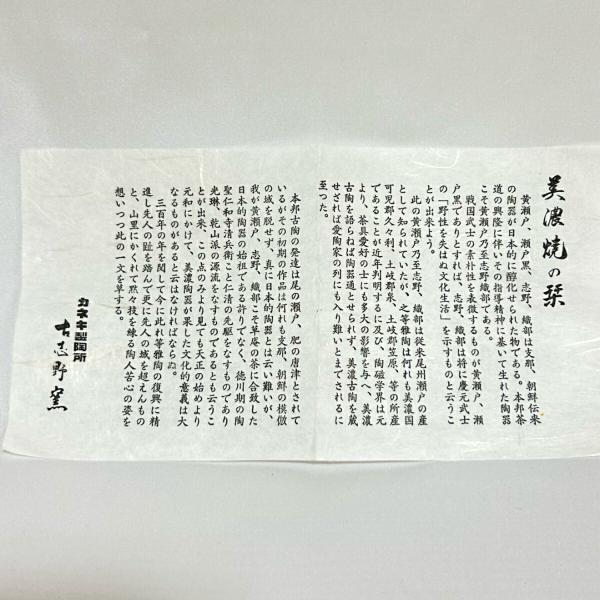 美濃焼の栞
黄瀬戸、瀬戸黒、志野、織部は支那、朝鮮伝来
の陶器が日本的に醇化せられた物である。本邦茶
道の興隆に伴いその指導精神に基いて生れた陶器
こそ黄瀬戸乃至志野織部である。
戦国武士の素朴性を表徴するものが黄瀬戸、瀬
戸黒でありとすれば、志野、織部は将に慶元武士
の「野性を失はぬ文化生活」を示すものと云うこ
とが出来よう。
此の黄瀬戸乃至志野、織部は従来尾州瀬戸の産
として知られていたが、之等雅陶は何れも美濃国
可児郡久々利、土岐郡泉、土岐郡笠原、等の所産
であることが近年判明するに及び、陶磁学界は元
より、茶具愛好の士にも多大の影響を与へ、美濃
古陶を語らねば陶器通とせられず、美濃古陶を蔵
せざれば愛陶家の列にも入り難いとまでされるに
至った。
本邦古陶の発達は尾の瀬戸、肥の唐津とされて
いるがその初期の作品は何れも支那、朝鮮の模倣
の域を脱せず、真に日本的陶器とは云い難いが、
我が黄瀬戸、志野、織部こそ草庵の茶に合致した
日本的陶器の始祖である許りでなく、徳川期の陶
聖仁和寺清兵衛こと仁清の先駆をなすものであり
光琳、乾山派の源流をなすものであるとも云うこ
とが出来、この点のみより見ても天正の始めより
元和にかけて、美濃陶器が果した文化的意義は大
なるものがあると云はなければならぬ。
三百年の年を閲して今に此れ等雅陶の復興に精
進し先人の趾を踏んで更に先人の域を超えんもの
と、山里にかくれて黙々技を練る陶人苦心の姿を
想いつつ此の一文を草する。
カネキ製陶所
古志野窯